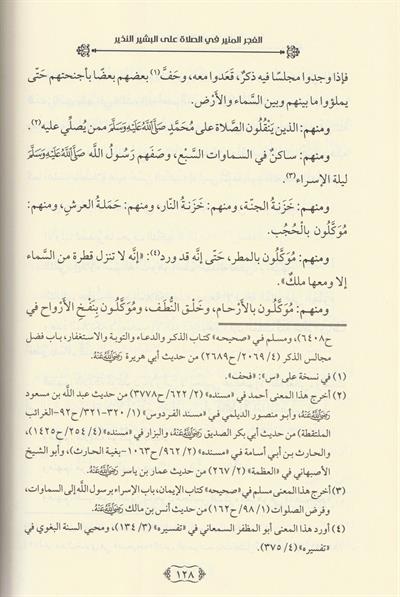 الفجر المنير في الصلاة على البشير النذير
فإذا وجدوا مجلسًا فيه ذكرٌ، قَعَدوا معه، وحَفَّ(١) بعضهم بعضًا بأجنحتهم حَتّى
يملؤوا ما بينهم وبين السَّماء والأَرْض.
ومنهم: الذين يَنْقُلُون الصَّلاة على مُحَمَّدٍ ﷺ ممن يُصلِّي عليه(٢).
ومنهم: ساكنٌ في السماوات السَّبْع، وصَفَهم رَسُولُ اللَّه ﷺ
ليلة الإسراء(٣).
ومنهم: خَزَنةُ الجنّة، ومنهم: خَزَنةُ النّار، ومنهم: حَمَلةُ العرشِ، ومنهم:
مُوَكَّلُون بالْحُجُب.
ومنهم: مُوَكَّلُون بالمطر، حَتّى إنَّه قد ورد(٤): «إنَّه لا تنزل قطرة من السَّماء
إلا ومعها ملكٌ».
ومنهم: مُوَكَّلُون بالأرْحام، وخَلْق النُّطَف، ومُوَكَّلُون بِنَفْخِ الأرْواح في
ح٦٤٠٨)، ومسلم في «صحيحه» كتاب الذكر والدعاء والتوبة والاستغفار، باب فضل
مجالس الذكر (٤/ ٢٠٦٩/ ح٢٦٨٩) من حديث أبي هريرة رَضِيَ اللَّهُ عَنْهُ.
(١) في نسخة على «س»: «فحف».
(٢) أخرج هذا المعنى أحمد في «مسنده» (٢/ ٦٢٢/ ح٣٧٧٨) من حديث عبد اللَّه بن مسعود
رَضِيَ اللَّهُ عَنْهُ، وأبو منصور الديلمي في «مسند الفردوس» (١/ ٣٢٠-٣٢١/ ح٩٢-الغرائب
الملتقطة) من حديث أبي بكر الصديق رَضِيَ اللَّهُ عَنْهُ، والبزار في «مسنده» (٤/ ٢٥٤/ ح١٤٢٥)،
والحارث بن أبي أسامة في «مسنده» (٢/ ٩٦٢/ ح١٠٦٣-بغية الحارث)، وأبو الشيخ
الأصبهاني في «العظمة» (٢/ ٢٦٧) من حديث عمار بن ياسر رَضِيَ اللَّهُ عَنْهُ.
(٣) أخرج هذا المعنى مسلم في «صحيحه» كتاب الإيمان، باب الإسراء برسول اللَّه إلى السماوات،
وفرض الصلوات (١/ ٩٨/ ح١٦٢) من حديث أنس بن مالك رَضِيَ اللَّهُ عَنْهُ.
(٤) أورد هذا المعنى أبو المظفر السمعاني في «تفسيره» (٣/ ١٣٤)، ومحيي السنة البغوي في
«تفسيره» (٤/ ٣٧٥).
١٢٨